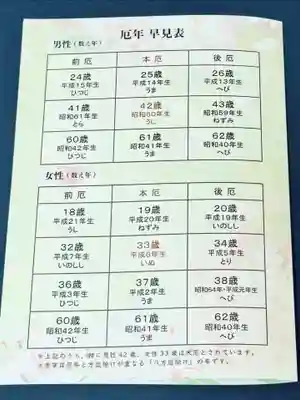 厄年 早見表
男性 (数え年)
前厄 本厄 後厄
24歳 25歳 26歳
平成15年生 平成14年生 平成13年生
ひつじ うま へび
41歳 42歳 43歳
昭和61年生 昭和60年生 昭和59年生
とら うし ねずみ
60歳 61歳 62歳
昭和42年生 昭和41年生 昭和40年生
ひつじ うま へび
女性 (数え年)
前厄 本厄 後厄
18歳 19歳 20歳
平成21年生 平成20年生 平成19年生
うし ねずみ いのしし
32歳 33歳 34歳
平成7年生 平成6年生 平成5年生
いのしし いぬ とり
36歳 37歳 38歳
平成3年生 平成2年生 昭和64年・平成元年生
ひつじ うま へび
60歳 61歳 62歳
昭和42年生 昭和41年生 昭和40年生
ひつじ うま へび
※上記のうち、特に男性42歳、女性33歳は大厄とされています。
厄年と方位除けが重なる「八方厄除け」の年です。